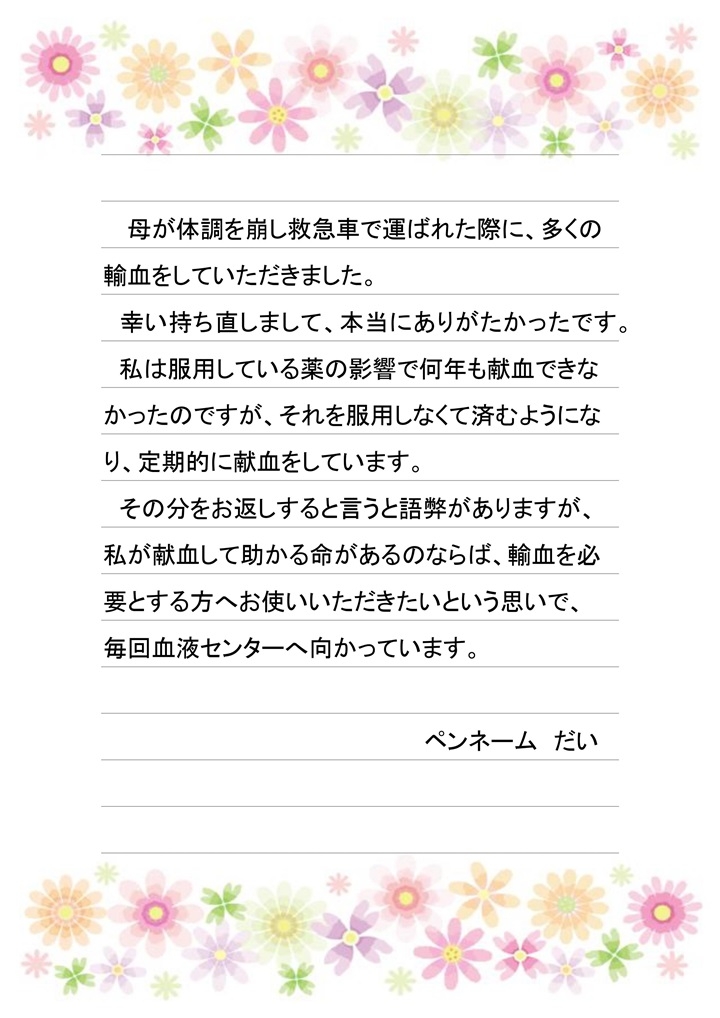 母が体調を崩し救急車で運ばれた際に、多くの
輸血をしていただきました。
幸い持ち直しまして、本当にありがたかったです。
私は服用している薬の影響で何年も献血できな
かったのですが、それを服用しなくて済むようにな
り、定期的に献血をしています。
その分をお返しすると言うと語弊がありますが、
私が献血して助かる命があるのならば、輸血を必
要とする方へお使いいただきたいという思いで、
毎回血液センターへ向かっています。
ペンネーム　だい